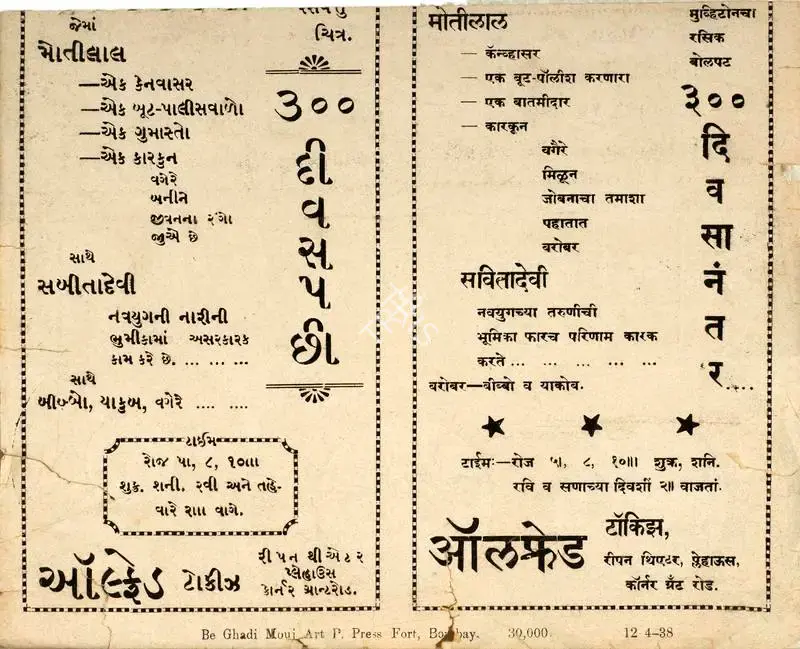 જેમાં
ચિત્ર.
મોતીલાલ
—એક કેનવાસર
—એક બૂટ-પાલીસવાળો
—એક ગુમાસ્તો
—એક કારકુન
વગેરે
બનીને
જીવનના રંગો
જીએ છે
સાથે
સબીતાદેવી
નવયુગની નારીની
ભુમીકામાં અસરકારક
કામ કરે છે. ... ... ...
સાથે
બીબ્બો, યાકુબ, વગેરે .... ....
૩૦૦
દી
વ
સ
પ
છી
ટાઈમ
રોજ ૫ા, ૮, ૧૦ાાા
શુક્ર. શની. રવી અને તહે-
વારે રાાા વાગે.
ઑલ્ફ્રેડ ટોકીઝ
રીપન થીએટર
પ્લેહાઉસ
કોર્નર ગ્રાન્ટરોડ.
मोतीलाल
— कॅन्व्हासर
— एक बूट-पॉलीश करणारा
— एक बातमीदार
— कारकून
वगैरे
मिळून
जोबनाचा तमाशा
पहातात
बरोबर
सवितादेवी
नवयुगच्या तरुणीची
भूमिका फारच परिणाम कारक
करते ... ... ... ... ...
बरोबर—बीब्बो व याकोब.
मुव्हिटोनचा
रसिक
बोलपट
३००
दि
व
सा
नं
त
र....
टाईमः—रोज ५।, ८, १०॥। शुक्र, शनि.
रवि व सणाच्या दिवशीं २॥ वाजतां.
ऑलफ्रेड टॉकिझ,
रीपन थिएटर, प्लेहाऊस,
कॉर्नर ग्रँट रोड.
Be Ghadi Mouj Art P. Press Fort, Bombay. 30,000. 12-4-38